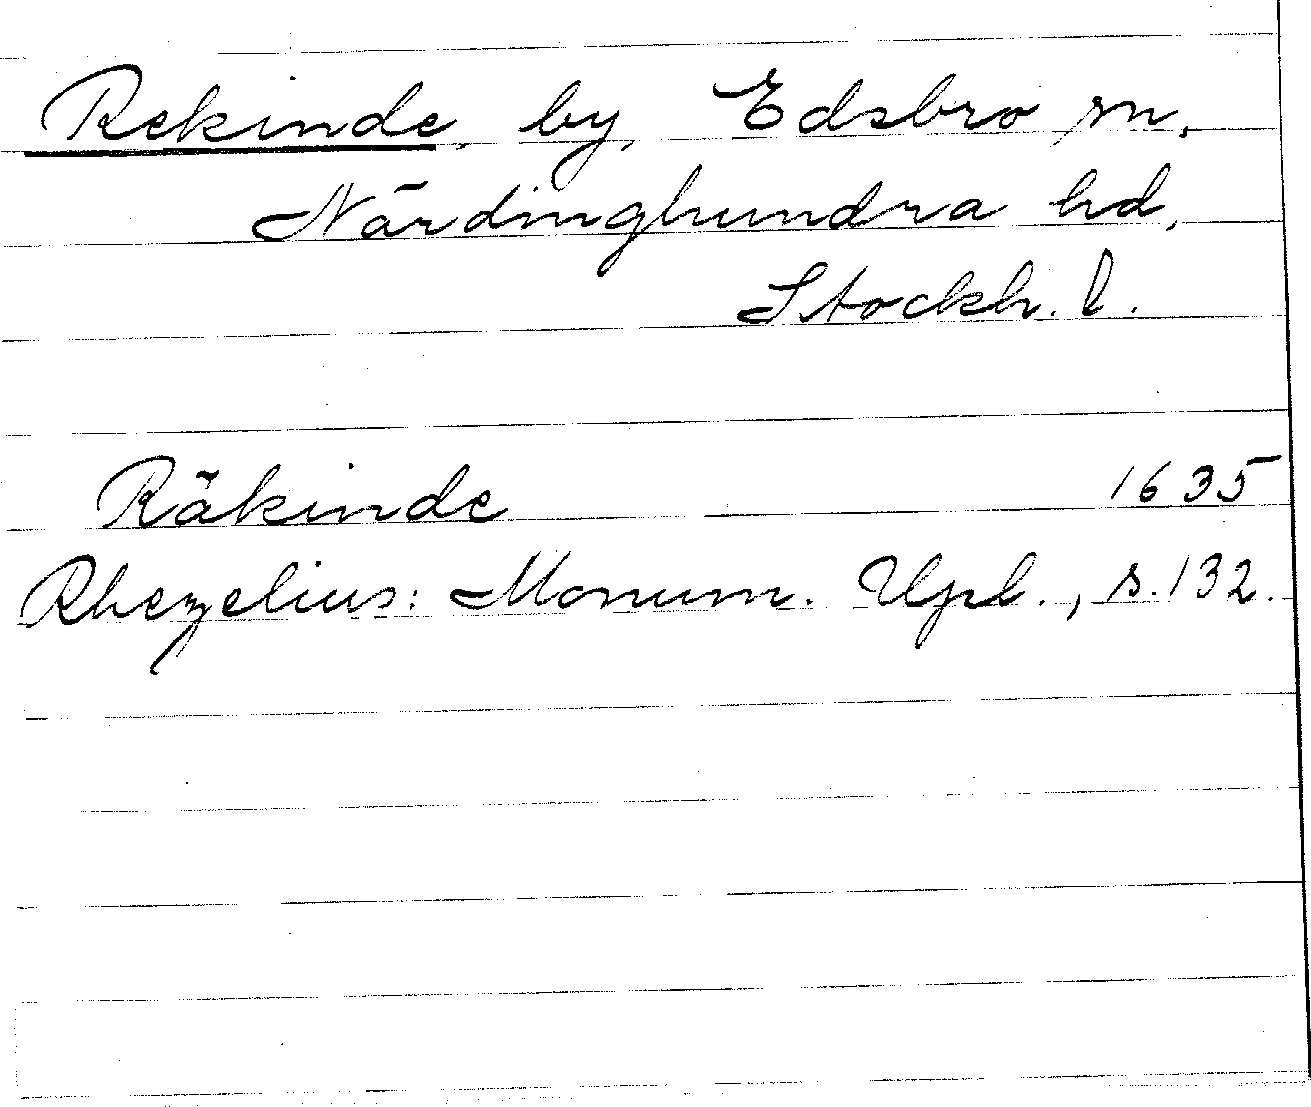 Rekinde, by, Edsbro sn,
Närdinghundra hd,
Stockh. l.
Räkinde 1635
Rhezelius: Monum. Upl., s. 132.